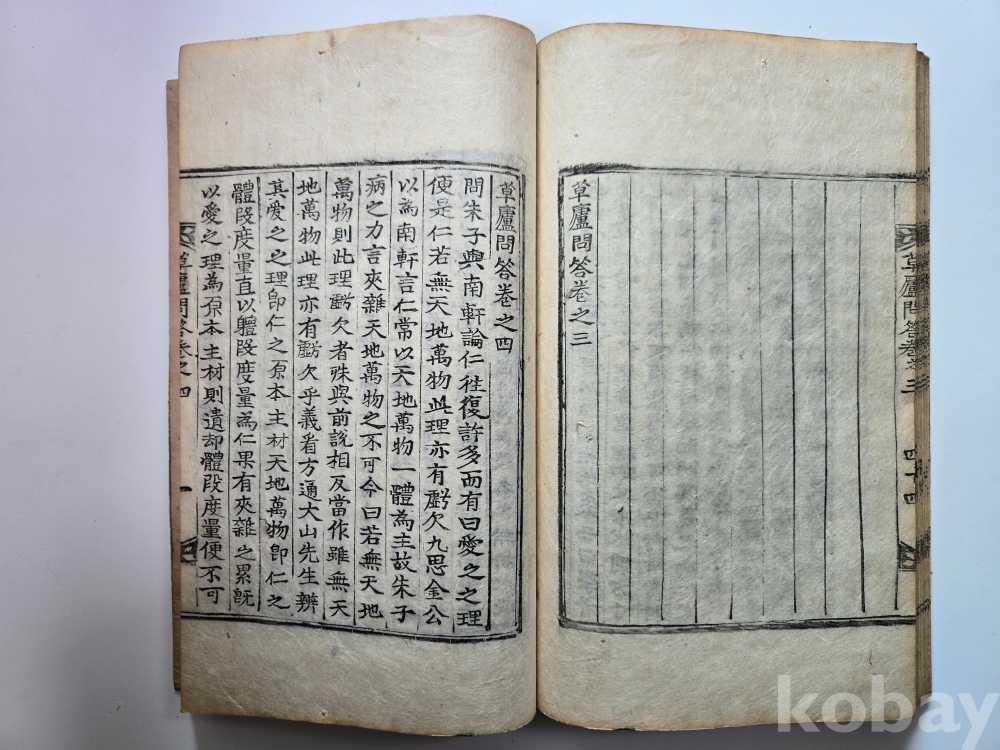 草廬問答卷之三
四十四
草廬問答卷之三
草廬問答卷之四
問朱子與南軒論仁往復許多而有曰愛之之理
便是仁若無天地萬物此理亦有虧欠九思金公
以為南軒言仁常以天地萬物一體為主故朱子
病之力言夾雜天地萬物之不可今曰若無天地
萬物則此理虧欠者殊與前說相反當作雖無天
地萬物此理亦有虧欠乎義看方通大山先生辨
其愛之之理卽仁之原本主材天地萬物卽仁之
體段度量直以軆段度量為仁果有夾雜之累旣
以愛之理為原本主材則遺却體段度量便不可
草廬問答卷之四
一
kobay